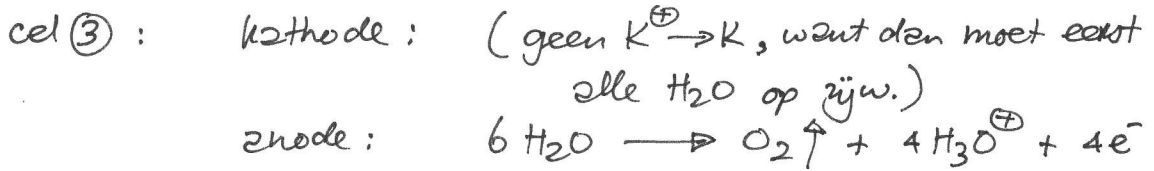 cel ③ : kathode : (geen K⊕→K, want dan moet eerst
alle H₂O op zijn.)
anode : 6 H₂O → O₂↑ + 4 H₃O⊕ + 4e⁻